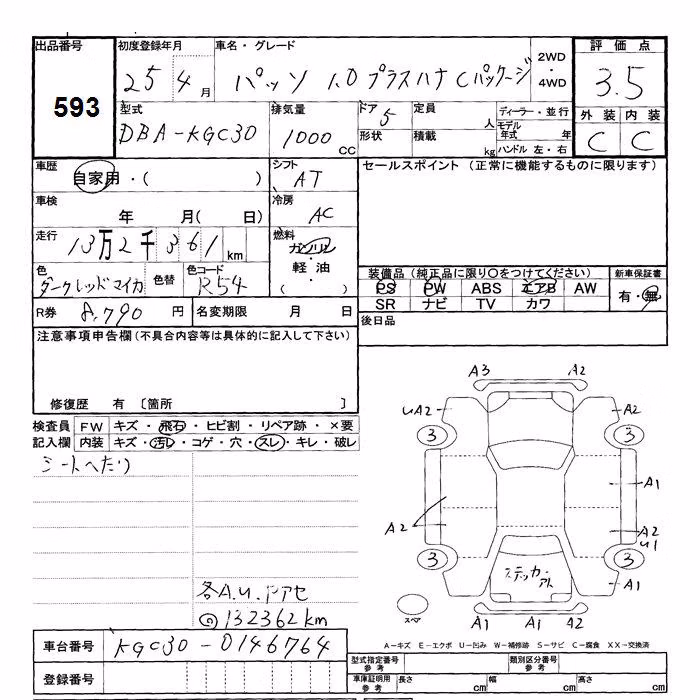 出品番号 初度登録年月 車名・グレード 評価点
593 25 4月 パッソ 1.0プラスハナCパッケージ 2WD・4WD 3.5
型式 排気量 ドア 定員 ディーラー・並行 外装 内装
DBA-KGC30 1000 CC 5 人 モデル年式 年 C C
形状 積載 kg ハンドル 左・右
車歴 自家用・( ) シフト AT セールスポイント (正常に機能するものに限ります)
車検 年 月( 日) 冷房 AC
走行 13万2千361 km 燃料 ガソリン・軽油・( )
色 ダークレッドマイカ 色替 色コード R54
装備品 (純正品に限り○をつけてください) 新車保証書
PS PW ABS エアB AW 有・無
SR ナビ TV カワ
R券 8,790 円 名変期限 月 日 後日品
注意事項申告欄(不具合内容等は具体的に記入して下さい)
修復歴 有 〔箇所 〕
検査員記入欄 FW キズ・飛石・ヒビ割・リペア跡・×要
内装 キズ・汚レ・コゲ・穴・スレ・キレ・破レ
シートへたり
A3 A2
uA2 A2
3 3
A1
A2 A2
u1
3 3
ステッカーアト A1
スペア A1 A1 A2
各A.u.ドアセ
132362km
A-キズ E-エクボ U-凹み W-補修跡 S-サビ C-腐食 XX-交換済
車台番号 KGC30-0146764
型式指定番号 参考 類別区分番号 参考
登録番号
車庫証明用 参考 長さ cm 幅 cm 高さ cm